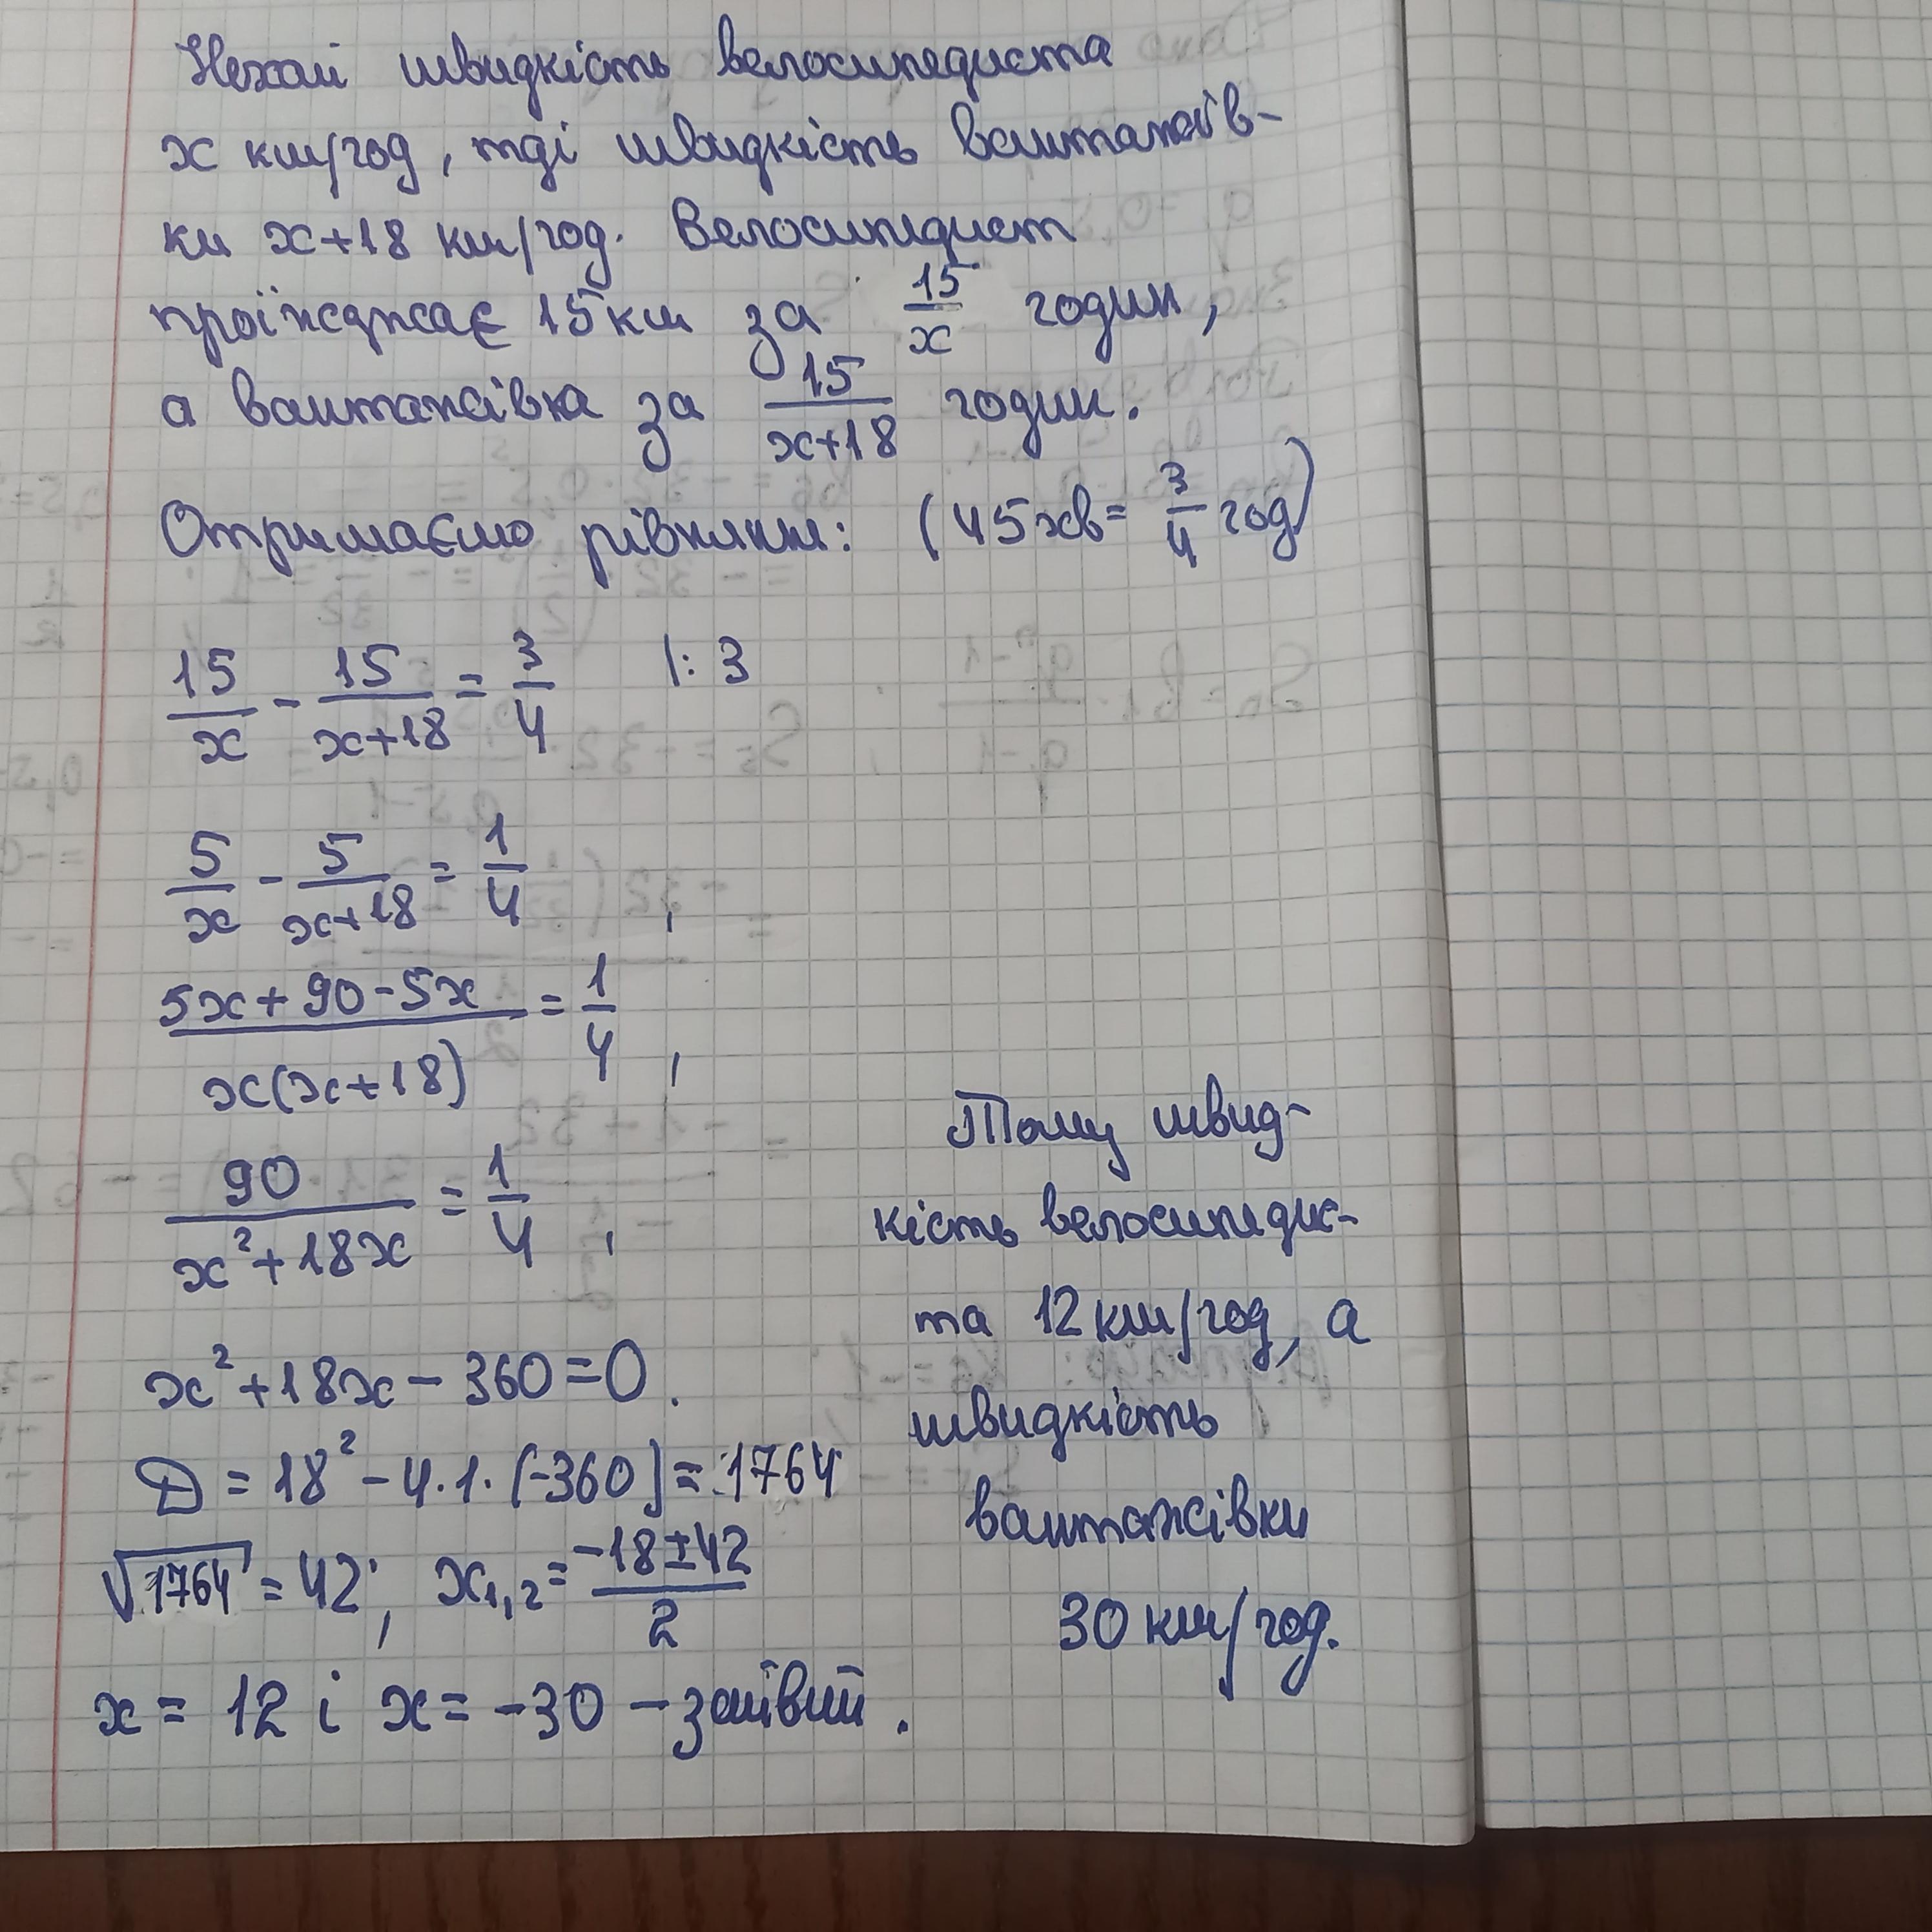 Нехай швидкість велосипедиста
x км/год, тді швидкість вантажів-
ки x+18 км/год. Велосипедист
проїжджає 15 км за 15/x годин,
а вантажівка за 15/(x+18) годин.
Отримаємо рівняння: (45хв = 3/4 год)
15/x - 15/(x+18) = 3/4 |: 3
5/x - 5/(x+18) = 1/4 ,
(5x+90-5x)/(x(x+18)) = 1/4 ,
90/(x²+18x) = 1/4 ,
x²+18x-360=0.
D = 18²-4·1·(-360) = 1764
√1764 = 42; x₁,₂ = (-18±42)/2
x = 12 і x = -30 - зайвий.
Тому швид-
кість велосипедис-
та 12 км/год, а
швидкість
вантажівки
30 км/год.